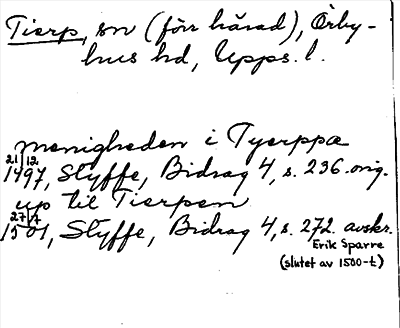 Tierp, sn (förr härad), Örby-
hus hd, Upps. l.
menigheden i Tyerppa
21/12
1497, Styffe, Bidrag 4, s. 236. orig.
up til Tierpen
27/7
1501, Styffe, Bidrag 4, s. 272. avskr.
Erik Sparre
(slutet av 1500-t)